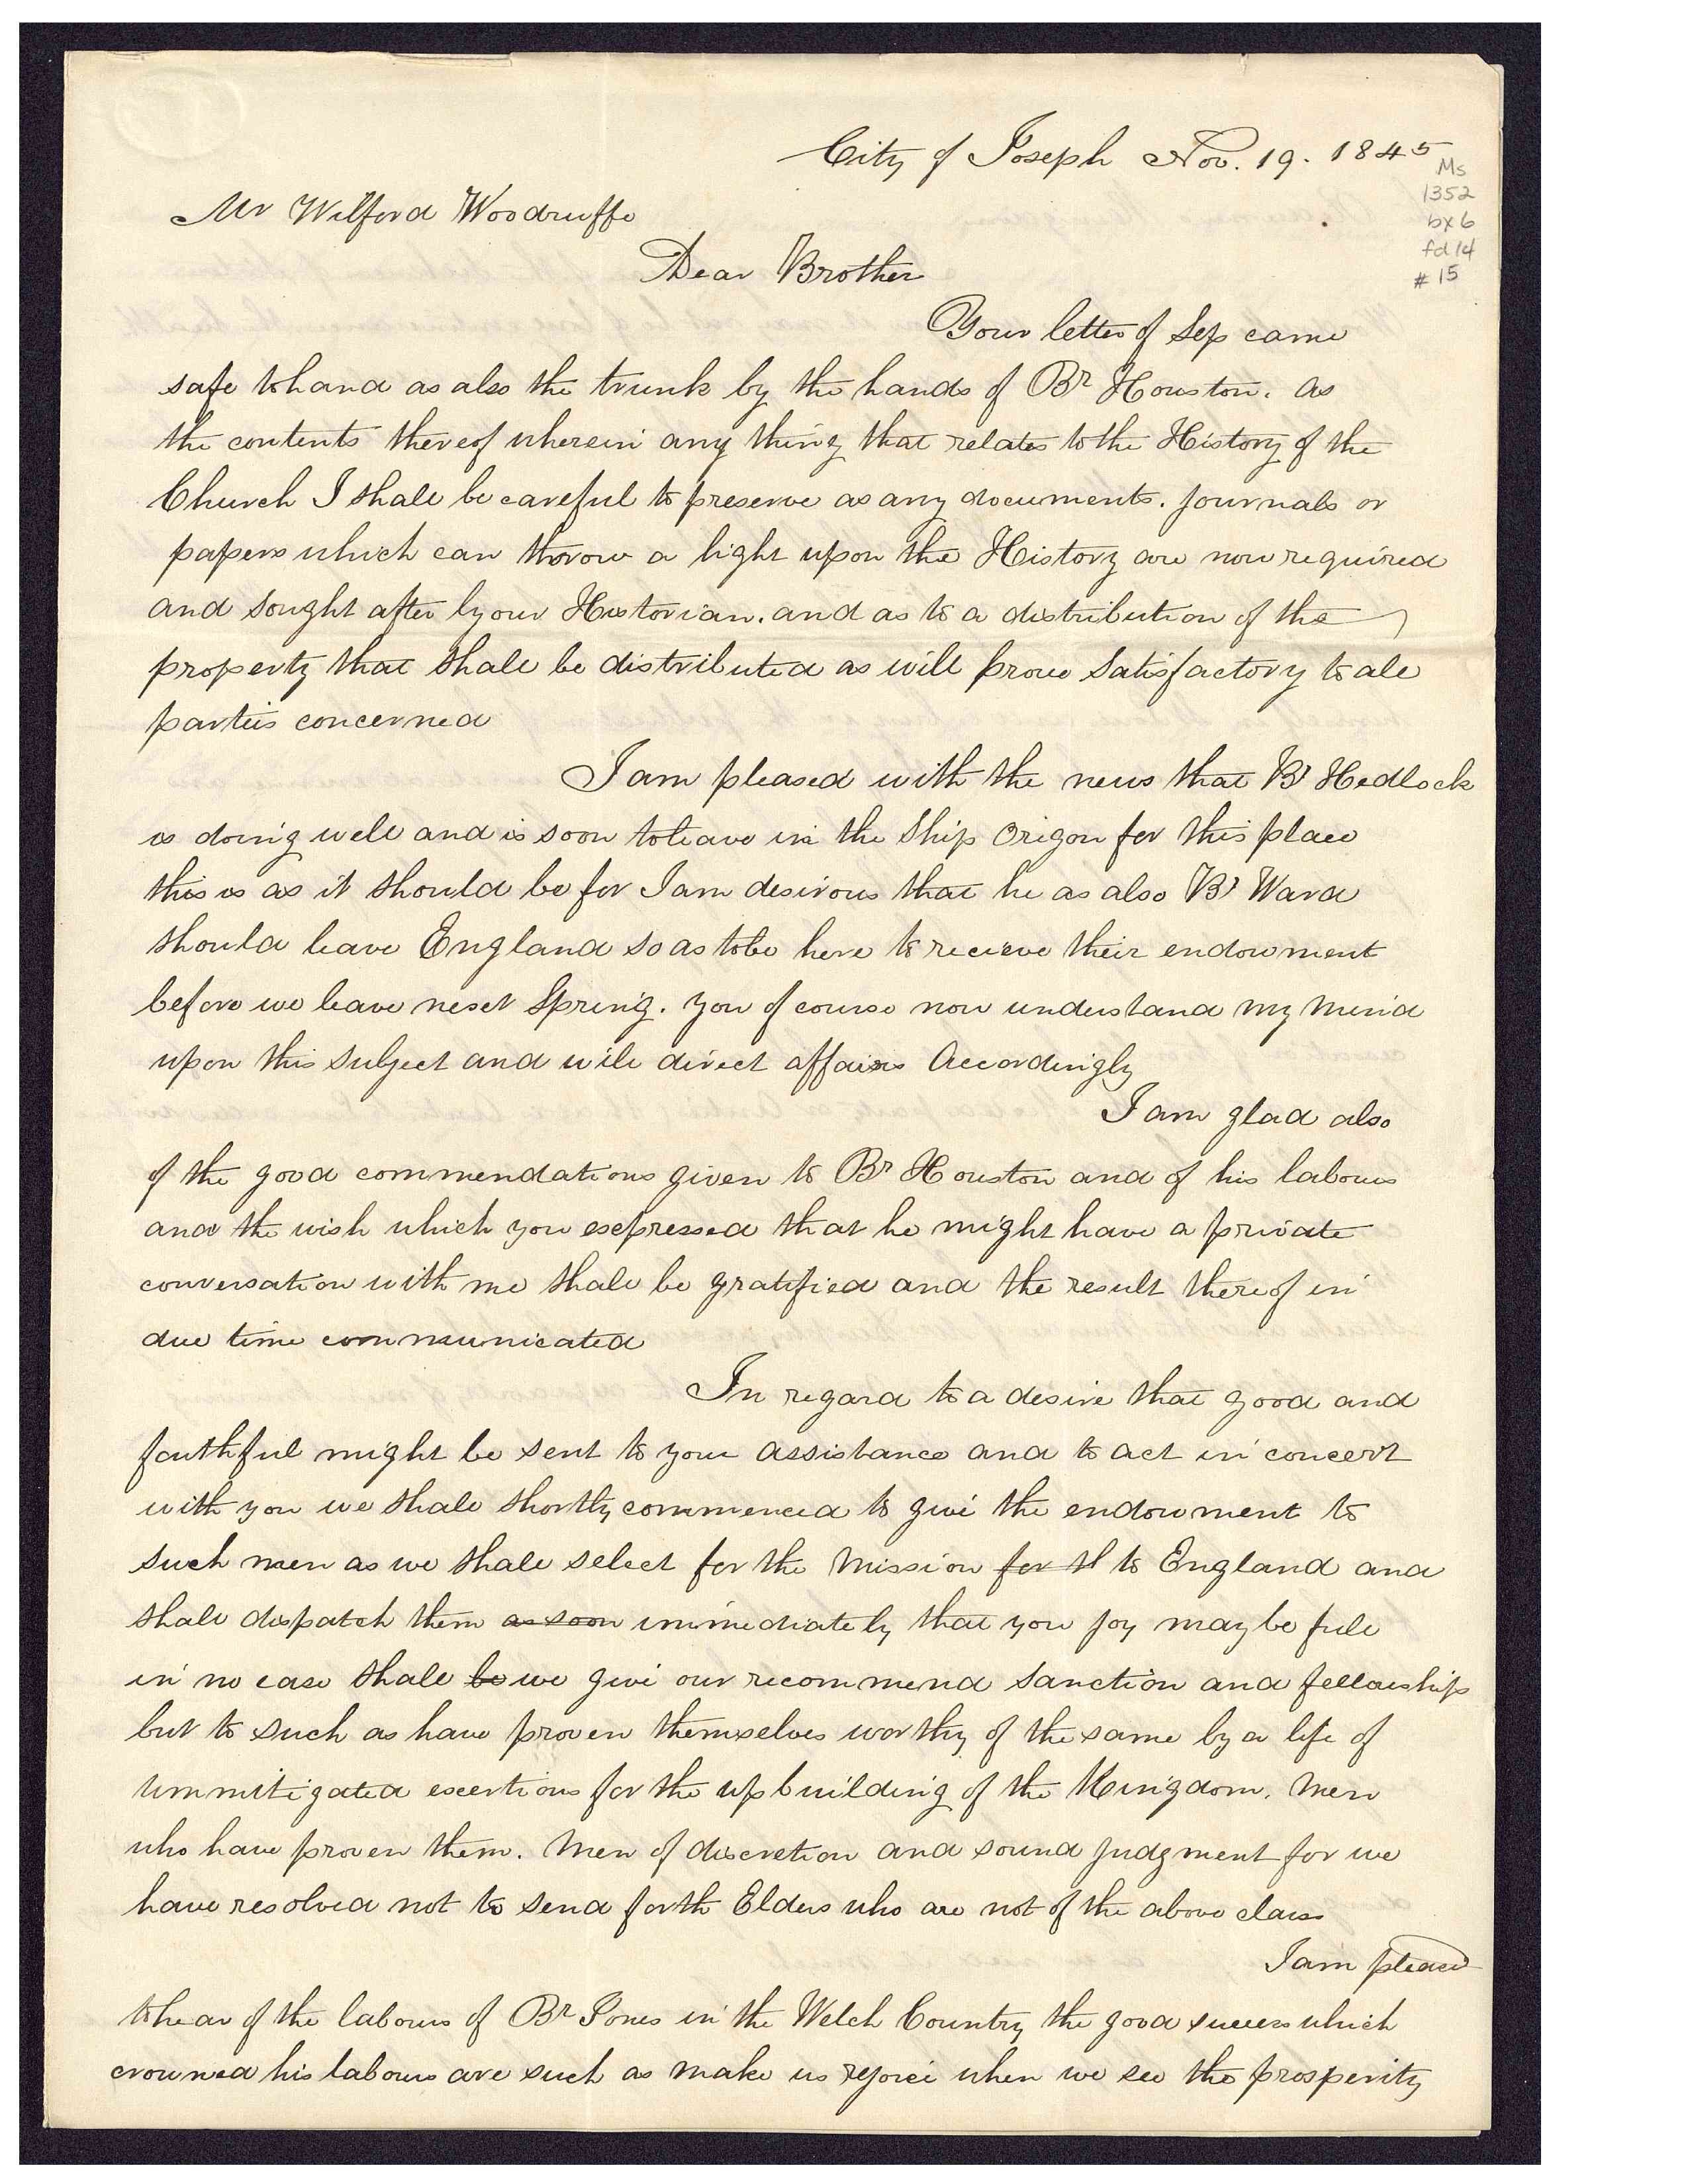 City of Joseph Nov. 19. 1845
Ms
1352
bx 6
fd 14
# 15
Mr Wilford Woodruffe
Dear Brother
Your letter of Sep came
safe to hand as also the trunk by the hands of Br Houston. as
the contents thereof wherein any thing that relates to the History of the
Church I shall be careful to preserve as any documents. Journals or
papers which can throw a light upon the History are now required
and sought after by our Historian. and as to a distribution of the
property that shall be distributed as will prove satisfactory to all
parties concerned
I am pleased with the news that Br Hedlock
is doing well and is soon to leave in the Ship Origon for this place
this is as it should be for I am desirous that he as also Br Ward
should leave England so as to be here to recieve their endowment
before we leave next Spring. you of course now understand my mind
upon this subject and will direct affairs Accordingly
I am glad also
of the good commendations given to Br Houston and of his labours
and the wish which you expressed that he might have a private
conversation with me shall be gratified and the result thereof in
due time communicated
In regard to a desire that good and
faithful might be sent to your assistance and to act in concert
with you we shall shortly commenced to give the endowment to
such men as we shall select for the Mission for th to England and
shall dispatch them as soon immediately that you joy may be full
in no case shall be we give our recommend sanction and fellowship
but to such as have proven themselves worthy of the same by a life of
unmitigated exertions for the upbuilding of the Kingdom. Men
who have proven them. Men of discretion and sound judgment for we
have resolved not to send forth Elders who are not of the above class
I am pleased
to hear of the labours of Br Jones in the Welch Country the good success which
crowned his labours are such as make us rejoice when we see the prosperity